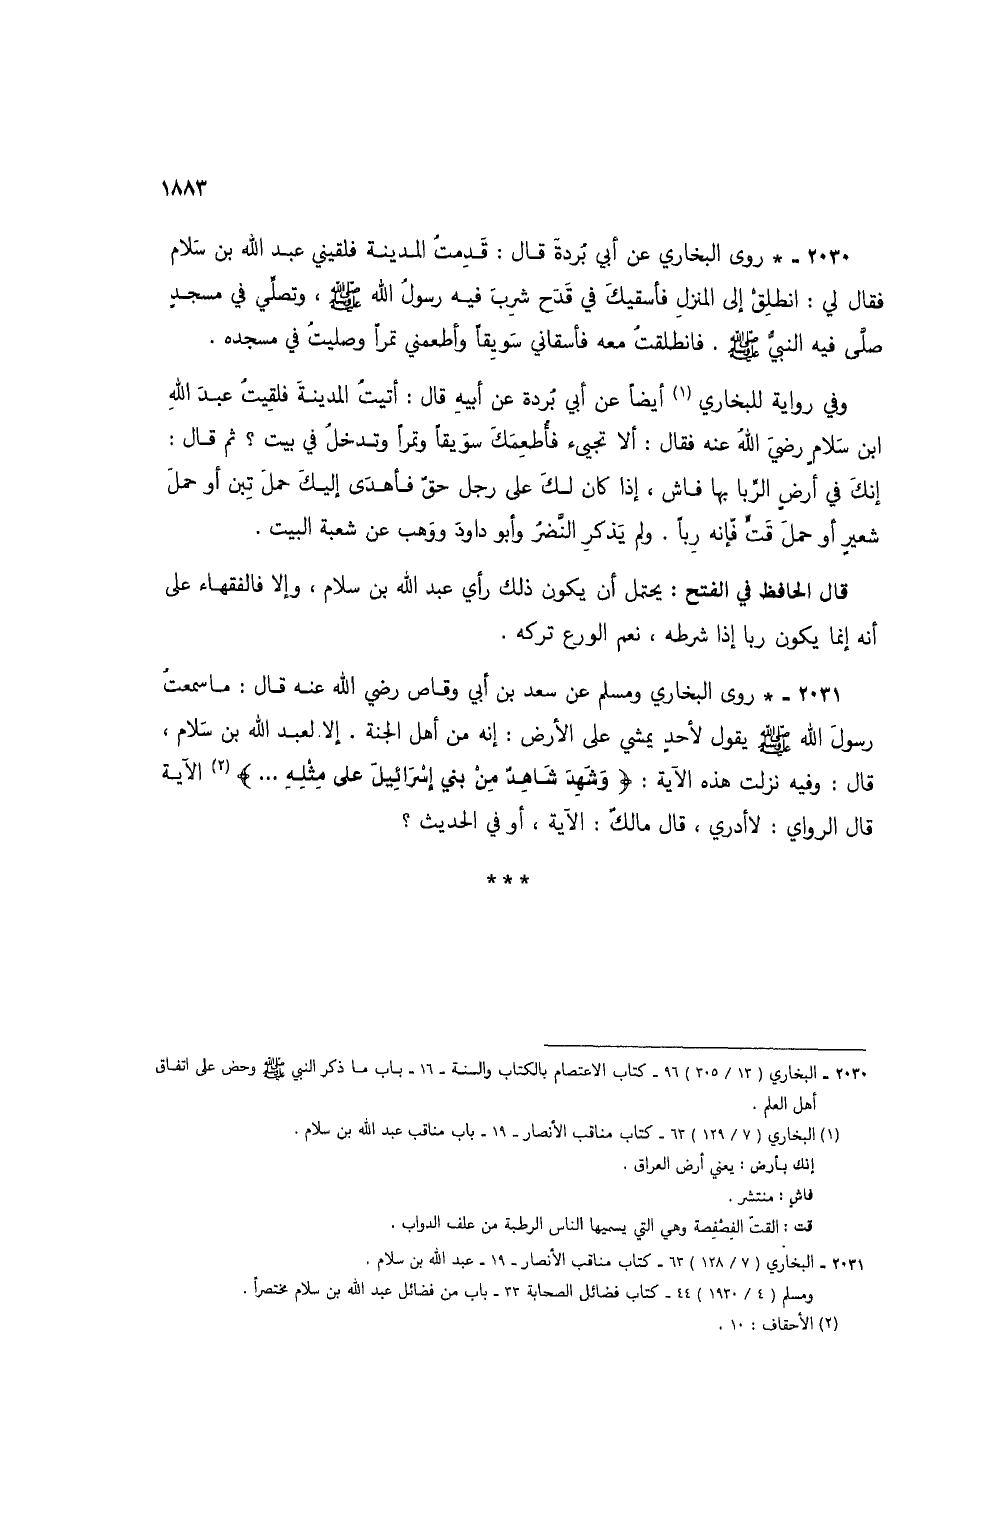 ١٨٨٣
٢٠٣٠ - * روى البخاري عن أبي بُردةَ قال : قَدِمتُ المدينة فلقيني عبد الله بن سَلام
فقال لي : انطلِقْ إلى المنزلِ فأسقيكَ في قَدَح شرِبَ فيه رسولُ الله ﷺ ، وتصلِّي في مسجدٍ
صلَّى فيه النبيُّ ﷺ . فانطلقتُ معه فأسقاني سَويقاً وأطعمني تمراً وصليتُ في مسجده .
وفي رواية للبخاري (١) أيضاً عن أبي بُردة عن أبيهِ قال : أتيتُ المدينةَ فلقِيتُ عبدَ اللهِ
ابن سَلامٍ رضيَ اللهُ عنه فقال : ألا تجيء فأُطعِمَكَ سوَيقاً وتمراً وتدخلُ في بيت ؟ ثم قال :
إنكَ في أرضٍ الرِّبا بها فاش ، إذا كان لكَ على رجل حقٌ فأهدَى إليكَ حملَ تِبن أو حملَ
شعيرٍ أو حملَ قَتٍّ فّإنه رِباً . ولم يَذكرِ النَّضرُ وأبو داودَ ووَهب عن شعبة البيت .
قال الحافظ في الفتح : يحتمل أن يكون ذلك رأي عبد الله بن سلام ، وإلا فالفقهاء على
أنه إنما يكون ربا إذا شرطه ، نعم الورع تركه .
٢٠٣١ - * روى البخاري ومسلم عن سعد بن أبي وقاص رضي الله عنه قال : ماسمعتُ
رسولَ الله ﷺ يقول لأحدٍ يمشي على الأرض : إنه من أهل الجنة . إلا لعبد الله بن سَلام ،
قال : وفيه نزلت هذه الآية : ﴿ وَشَهِدَ شَاهِدٌ مِنْ بني إسْرَائِيلَ على مِثْلِهِ ... ﴾ (٢) الآية
قال الرواي : لاأدري ، قال مالكٌ : الآية ، أو في الحديث ؟
* * *
٢٠٣٠ - البخاري ( ١٣ / ٣٠٥ ) ٩٦ - كتاب الاعتصام بالكتاب والسنة - ١٦ - باب ما ذكر النبي ﷺ وحض على اتفاق
أهل العلم .
(١) البخاري ( ٧ / ١٢٩ ) ٦٣ - كتاب مناقب الأنصار - ١٩ - باب مناقب عبد الله بن سلام .
إنك بأرض : يعني أرض العراق .
فاشٍ : منتشر .
قت : القتّ الفِصْفِصة وهي التي يسميها الناس الرطبة من علف الدواب .
٢٠٣١ - البخاري ( ٧ / ١٢٨ ) ٦٣ - كتاب مناقب الأنصار - ١٩ - عبد الله بن سلام .
ومسلم ( ٤ / ١٩٣٠ ) ٤٤ - كتاب فضائل الصحابة ٣٣ - باب من فضائل عبد الله بن سلام مختصراً .
(٢) الأحقاف : ١٠ .